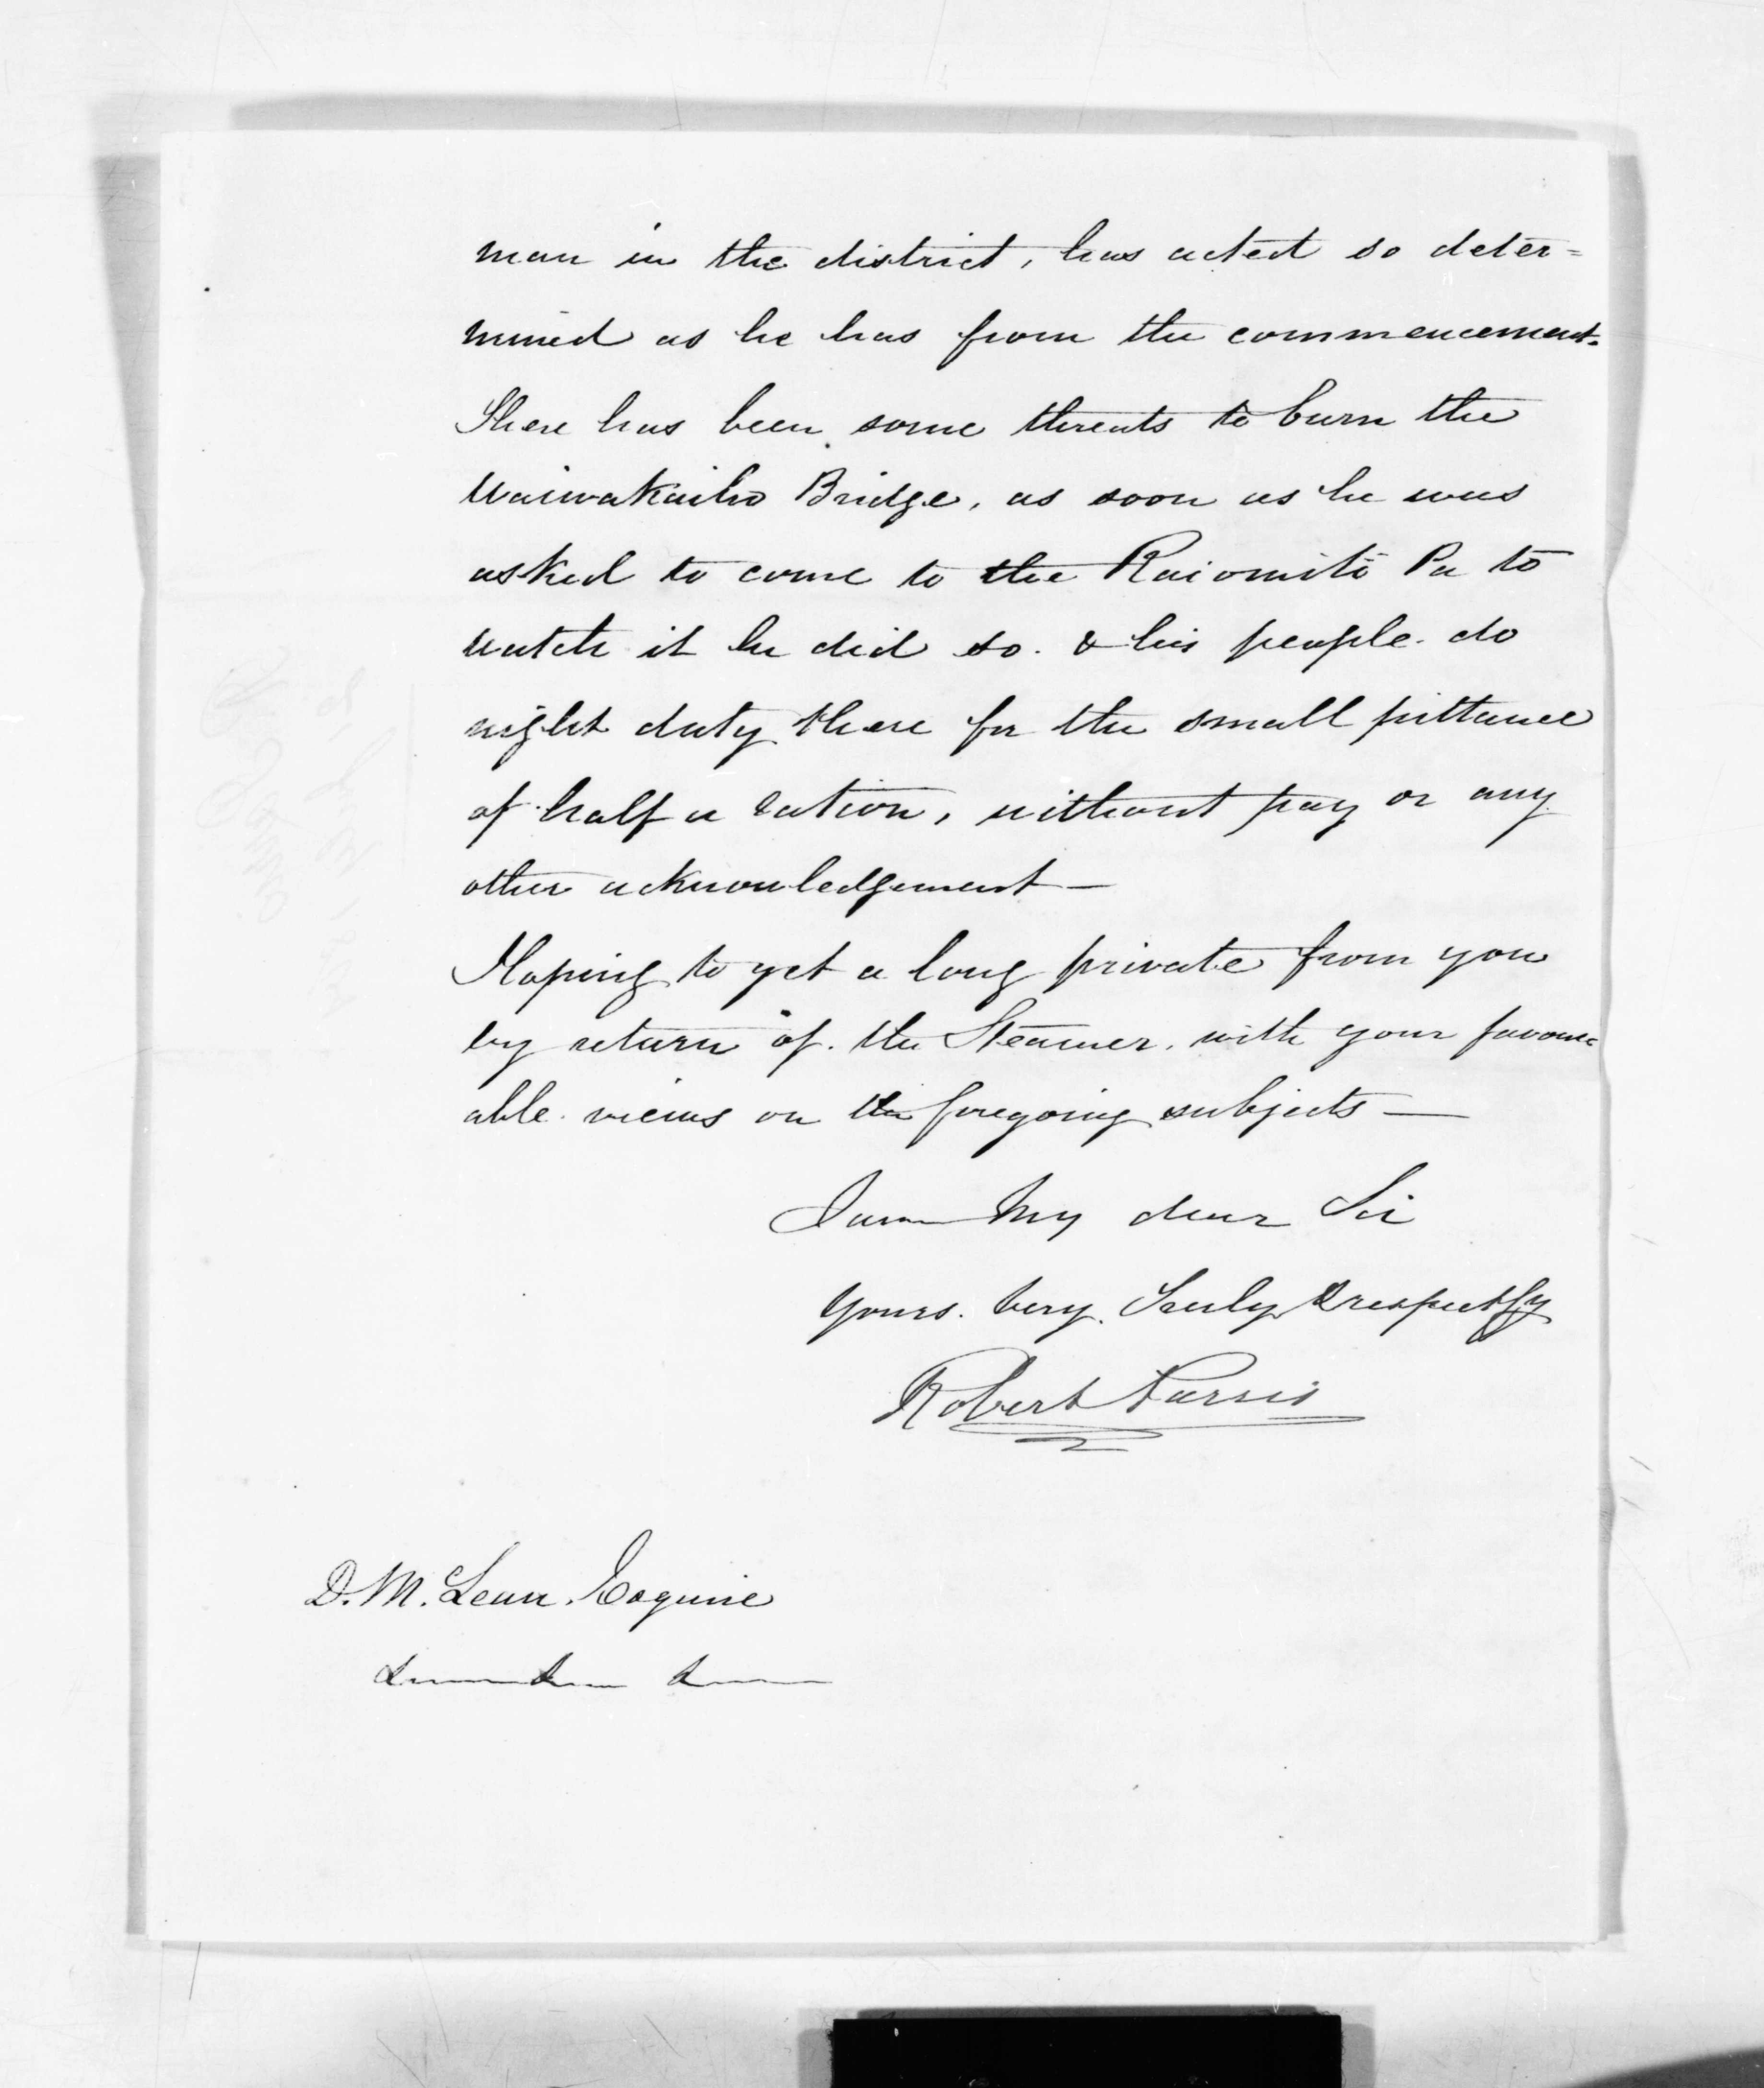 man in the district, has acted so deter=
mined as he has from the commencement.
There has been some threats to burn the
Waiwakaiho Bridge, as soon as he was
asked to come to the Raiomiti Pa to
watch it he did so. & his people do
night duty there for the small pittance
of half a ration, without pay or any
other acknowledgement —
Hoping to get a long private from you
by return of the Steamer, with your favour=
able views on the foregoing subjects —
I am My dear Sir
Yours. very. Truly & respectfy
Robert Parris
D. McLean. Esquire